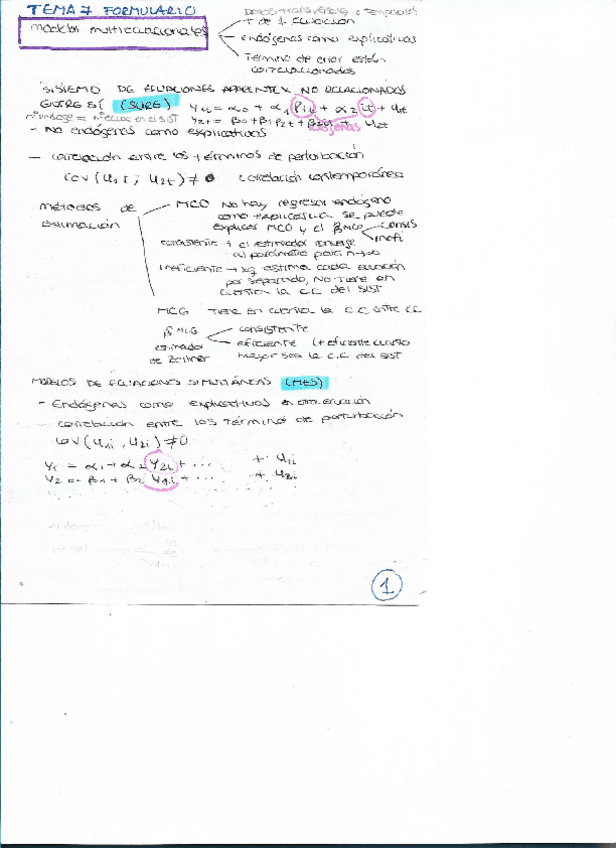 TEMA 7 FORMULARIO
modelos multiecuacionales
DATOS TRANSVERSALES o temporales
+ de 1 ecuación
endógenas como explicativas
Término de error están correlacionados
SISTEMA DE ECUACIONES APARENTEM NO RELACIONADAS
ENTRE SÍ (SURE) Y1t = α0 + α1 P1t + α2 It + u1t
nº endoge = nº ecuac en el sist Y2t = β0 + β1 P2t + β2 + u2t
- No endógenas como explicativas
- correlación entre los términos de perturbación
Cov (u1t ; u2t) ≠ 0 correlación contemporánea
métodos de estimación
MCO No hay regresor endógeno
como explicativa se puede
explicar MCO y el β MCO consis
inefi
consistente + el estimador converge
al parámetro para n→∞
ineficiente → xq estima cada ecuación
por separado, NO tiene en
cuenta la C.C del sist
MCG TIENE EN CUENTA la C.C entre EC
β MCG consistente
estimador eficiente (+ eficiente cuanto
de Zellner mayor sea la C.C del sist
MODELOS DE ECUACIONES SIMULTÁNEAS (MES)
- Endógenas como explicativas en otra ecuación
- correlación entre los términos de perturbación
Cov (u1i , u2i) ≠ 0
Y1 = α1 + α2 Y2i + ... + u1i
Y2 = β1 + β2 Y1i + ... + u2i
1